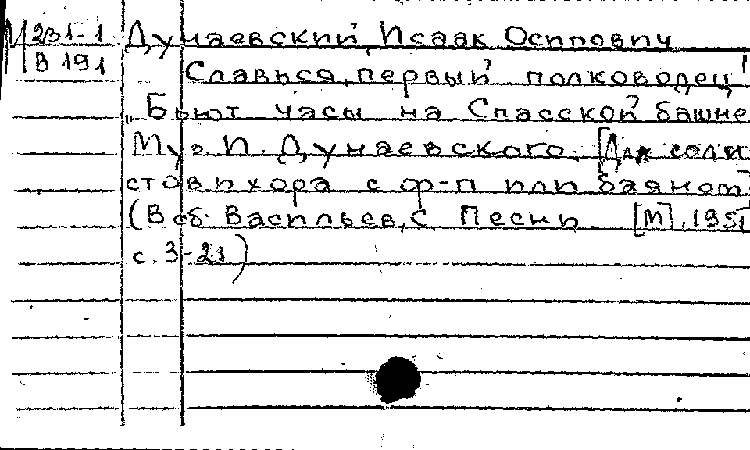 М 231-1 Дунаевский, Исаак Осипович
В 191 Славься, первый полководец!
„Бьют часы на Спасской башне
Муз. И. Дунаевского. [Для соли
стов и хора с ф-п или баяном]
(В сб. Васильев, С Песни. [М], 1951
с. 3-21)